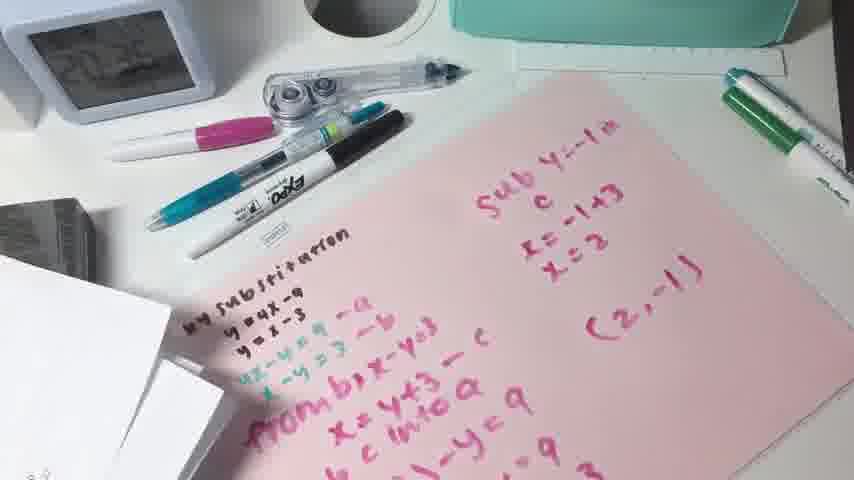 by substitution
y = 4x - 9
y = x - 3
4x - y = 9 - a
x - y = 3 - b
from b, x - y = 3
x = y + 3 - c
c into a
- y = 9
= 9
3
sub y = -1 in
c
x = -1 + 3
x = 2
(2, -1)
EXPO